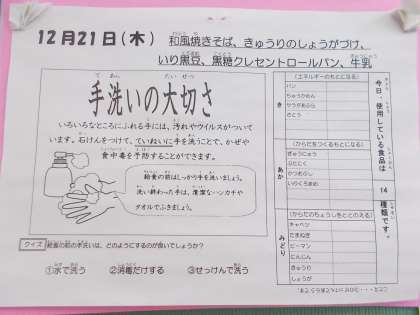 12月21日(木)
和風焼きそば、きゅうりのしょうがづけ、
いり黒豆、黒糖クレセントロールパン、牛乳
手洗いの大切さ
いろいろなところにふれる手には、汚れやウイルスがついて
います。石けんをつけて、ていねいに手を洗うことで、かぜや
食中毒を予防することができます。
給食の前はしっかり手を洗いましょう。
洗い終わった手は、清潔なハンカチや
タオルでふきましょう。
クイズ 給食の前の手洗いは、どのようにするのが良いでしょうか?
①水で洗う ②消毒だけする ③せっけんで洗う
今日、使用している食品は
14
種類です。
き
(エネルギーのもとになる)
パン
ちゅうかめん
さとう
あか
(からだをつくるもとになる)
ぎゅうにゅう
ぶたにく
かつおぶし
いりくろまめ
みどり
(からだのちょうしをととのえる)
キャベツ
たまねぎ
ピーマン
にんじん
きゅうり
しょうが